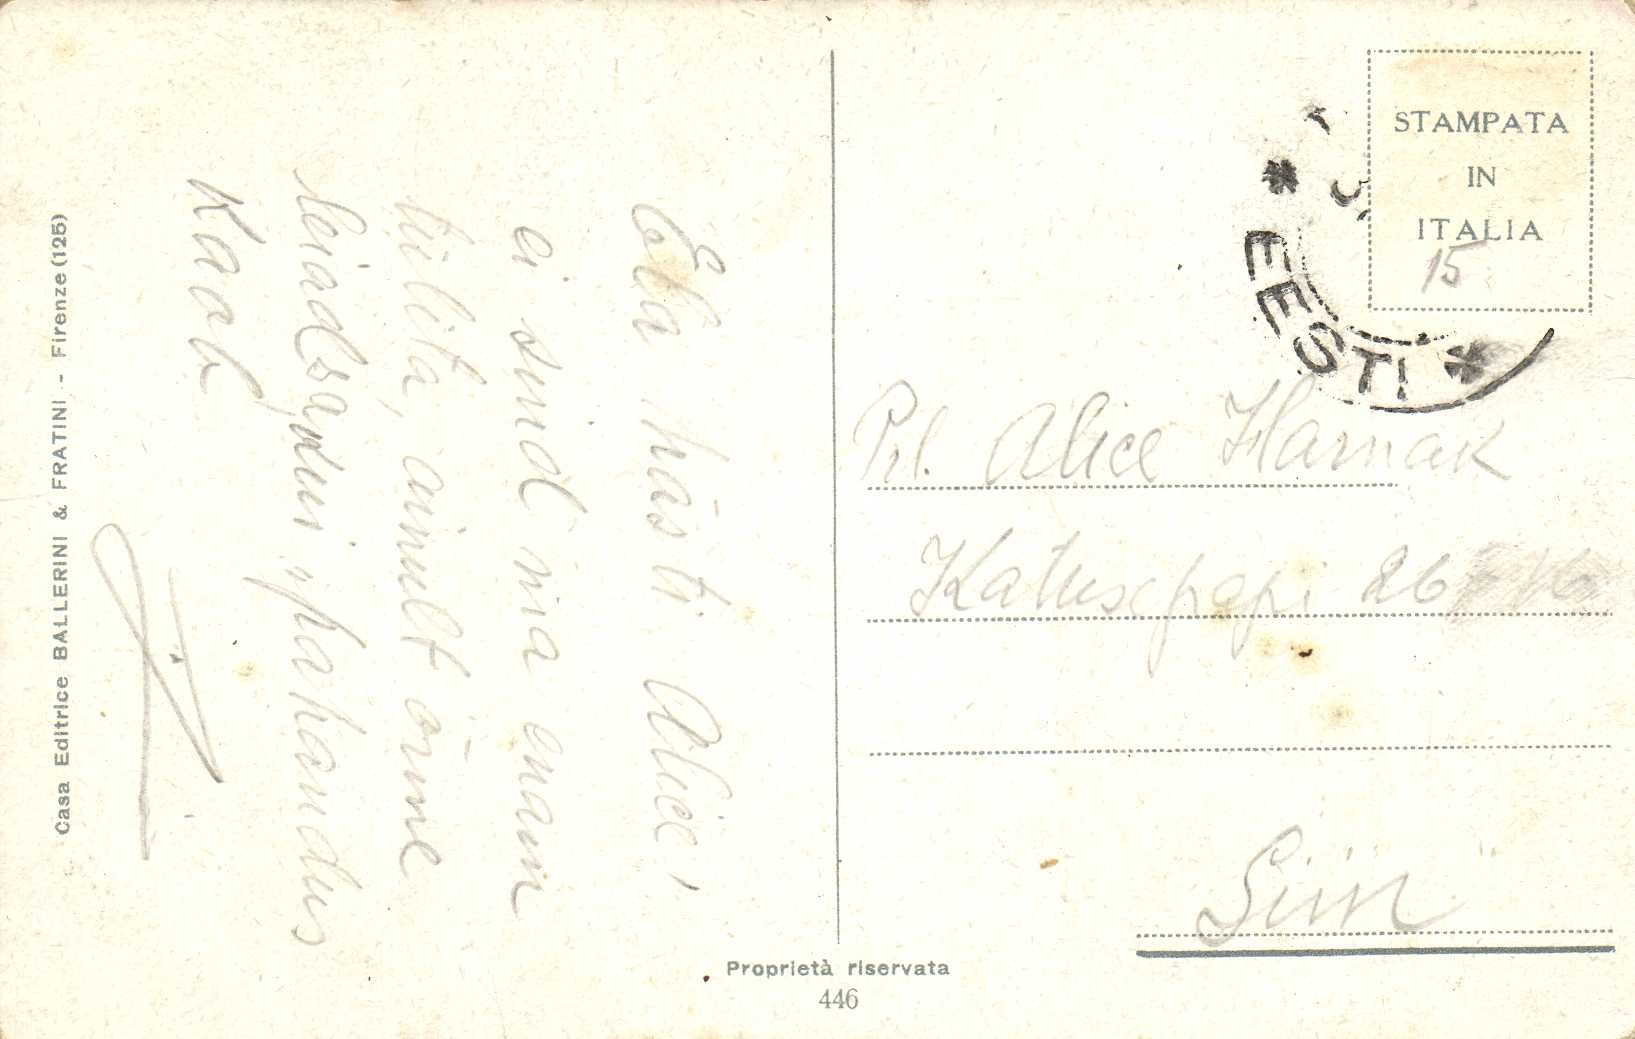 Ela hästi Alice,
ei sind ma enam
tülita, ainult õnne
leiad sa pühandus
Kaob
Prl. Alice Harnak
Katusepapi 26
Siin
STAMPATA
IN
ITALIA
15
* EESTI *
Casa Editrice BALLERINI & FRATINI - Firenze (125)
Proprietà riservata
446